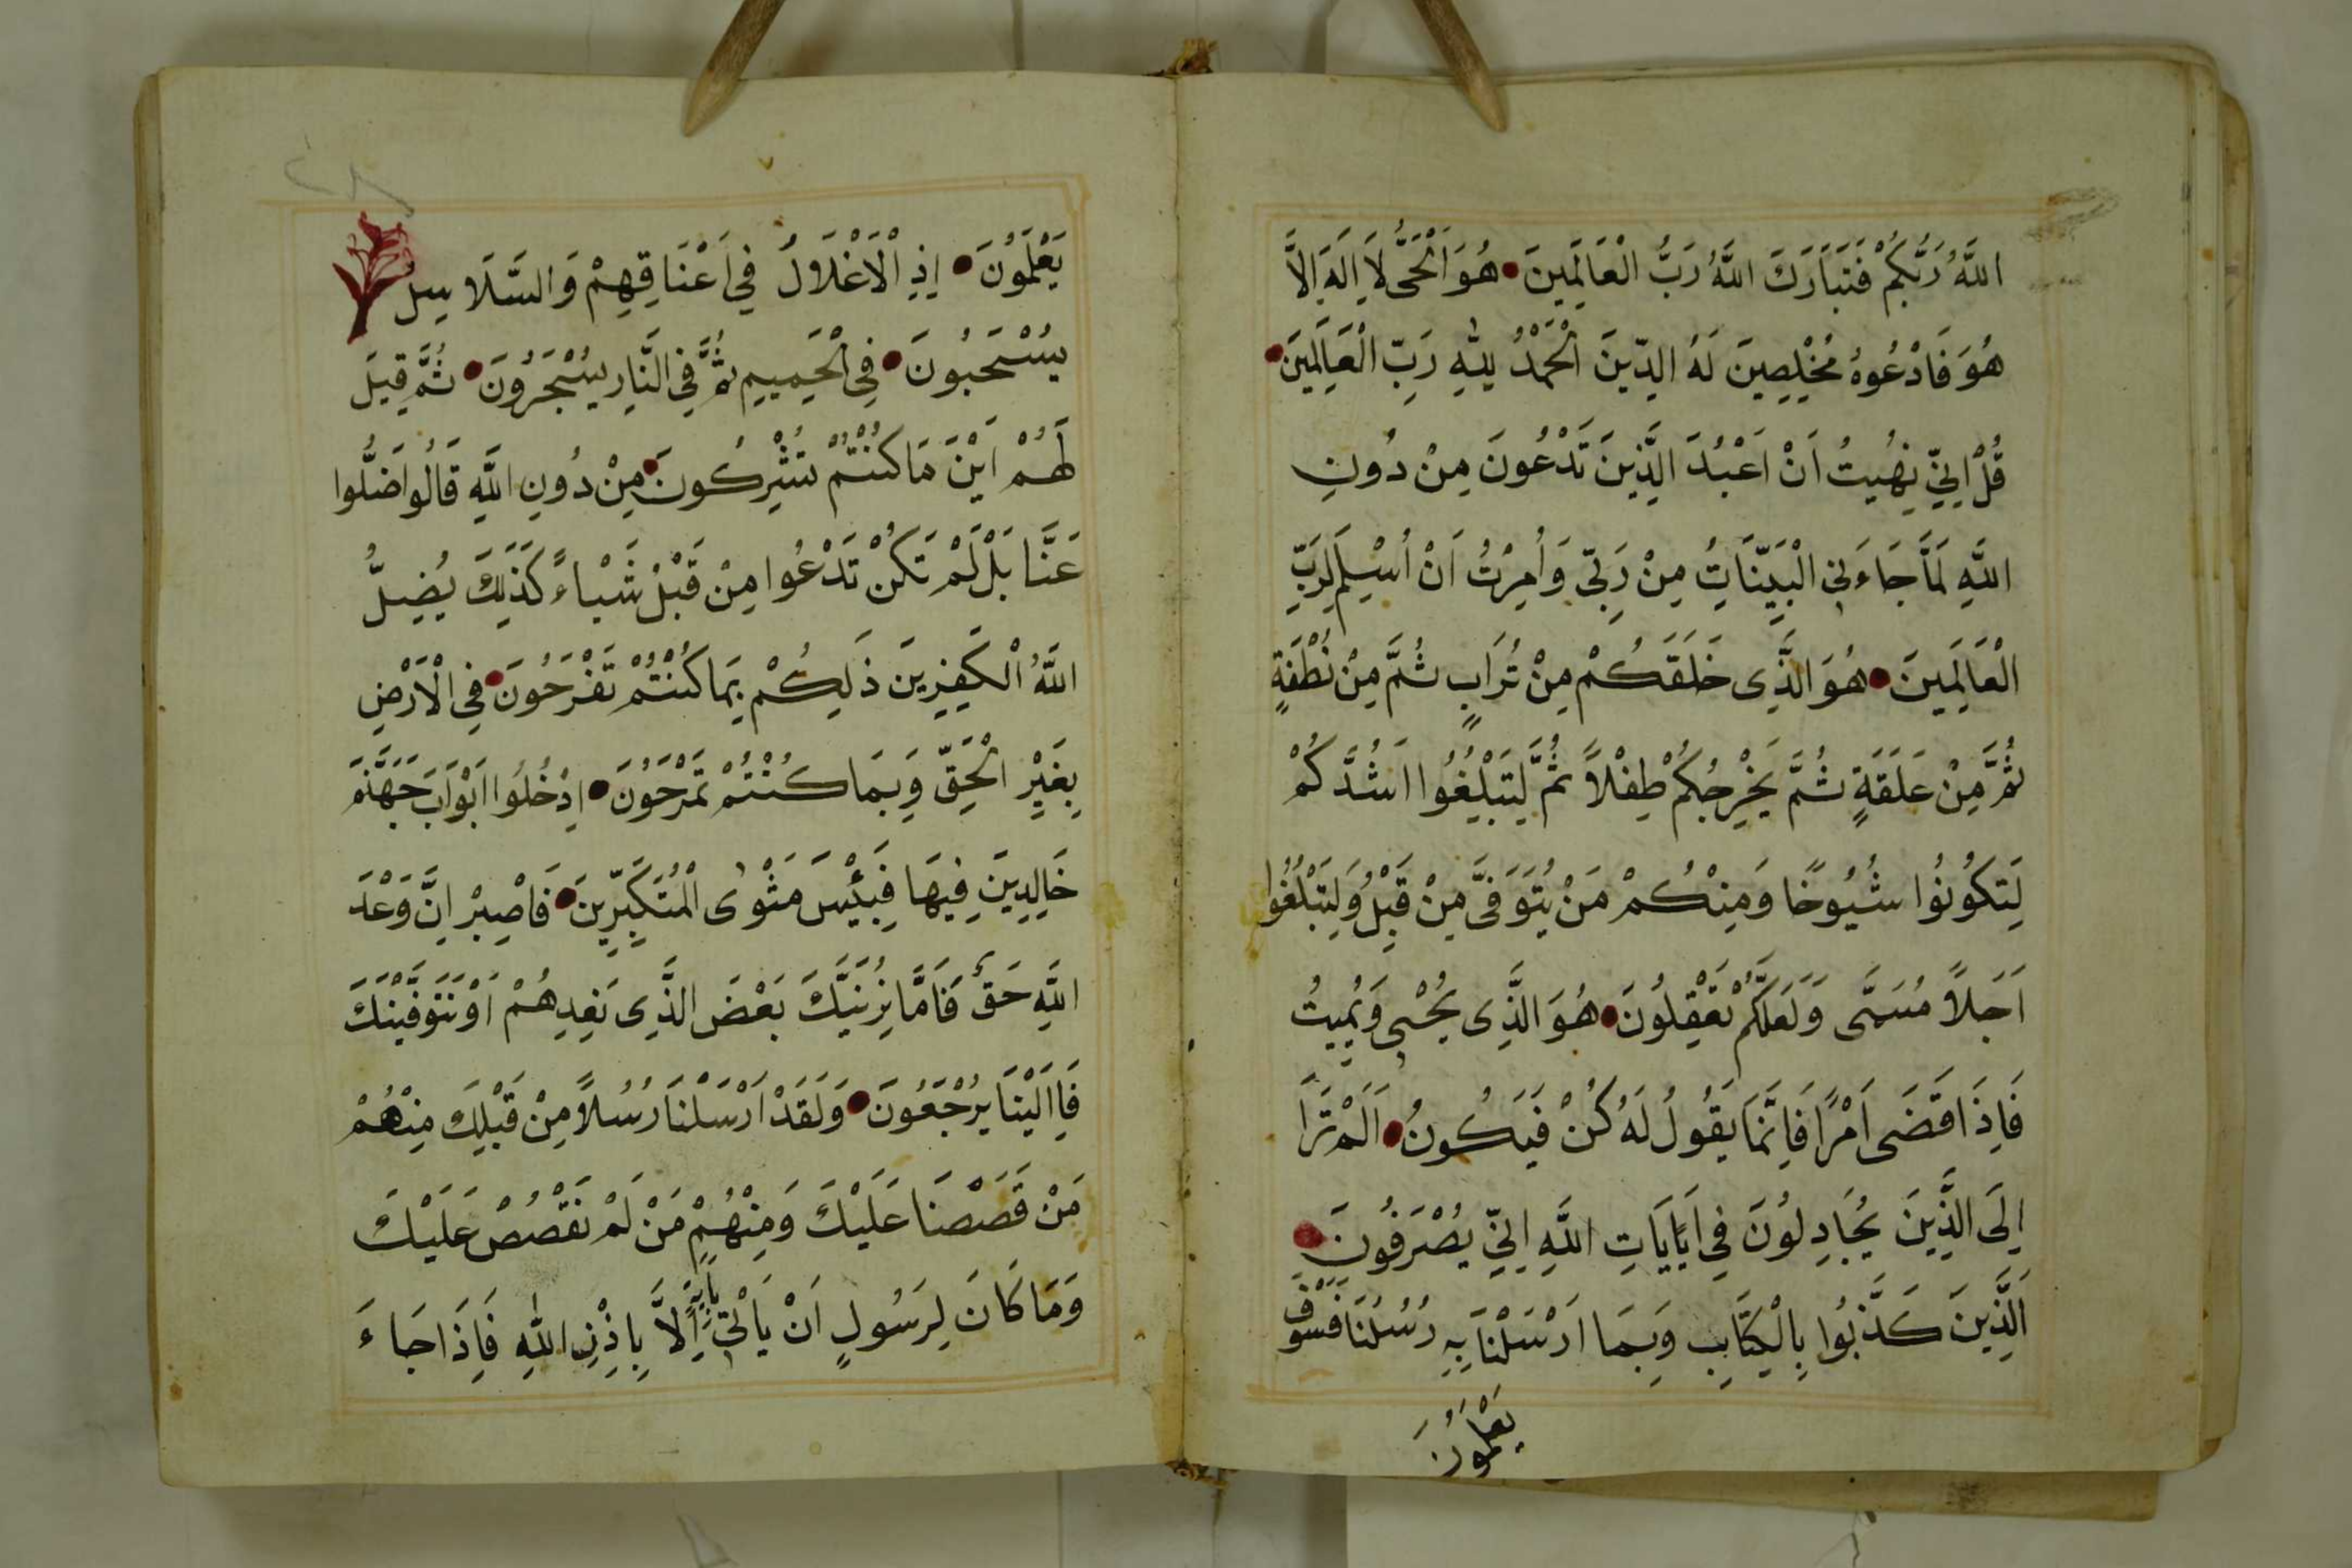 اللَّهُ رَبُّكُمْ فَتَبَارَكَ اللَّهُ رَبُّ الْعَالَمِينَ هُوَ الْحَىُّ لَا اِلَهَ اِلَّا
هُوَ فَادْعُوهُ مُخْلِصِينَ لَهُ الدِّينَ الْحَمْدُ لِلّٰهِ رَبِّ الْعَالَمِينَ
قُلْ اِنِّي نُهِيتُ اَنْ اَعْبُدَ الَّذِينَ تَدْعُونَ مِنْ دُونِ
اللَّهِ لَمَّا جَاءَنِي الْبَيِّنَاتُ مِنْ رَبِّي وَأُمِرْتُ اَنْ أُسْلِمَ لِرَبِّ
الْعَالَمِينَ هُوَ الَّذِى خَلَقَكُمْ مِنْ تُرَابٍ ثُمَّ مِنْ نُطْفَةٍ
ثُمَّ مِنْ عَلَقَةٍ ثُمَّ يُخْرِجُكُمْ طِفْلاً ثُمَّ لِتَبْلُغُوا اَشُدَّكُمْ
لِتَكُونُوا شُيُوخًا وَمِنْكُمْ مَنْ يُتَوَفَّى مِنْ قَبْلُ وَلِتَبْلُغُوا
اَجَلاً مُسَمَّى وَلَعَلَّكُمْ تَعْقِلُونَ هُوَ الَّذِى يُحْيِى وَيُمِيتُ
فَاِذَا قَضَى اَمْرًا فَاِنَّمَا يَقُولُ لَهُ كُنْ فَيَكُونُ اَلَمْ تَرَا
اِلَى الَّذِينَ يُجَادِلُونَ فِى اَيَاتِ اللَّهِ اِنِّي يُصْرَفُونَ
اَلَّذِينَ كَذَّبُوا بِالْكِتَابِ وَبِمَا اَرْسَلْنَا بِهِ رُسُلَنَا فَسَوْفَ
يَعْلَمُونَ
يَعْلَمُونَ اِذِ الْاَغْلَالُ فِي اَعْنَاقِهِمْ وَالسَّلَاسِلُ
يُسْحَبُونَ فِى الْحَمِيمِ ثُمَّ فِى النَّارِ يُسْجَرُونَ ثُمَّ قِيلَ
لَهُمْ اَيْنَ مَا كُنْتُمْ تُشْرِكُونَ مِنْ دُونِ اللَّهِ قَالُوا ضَلُّوا
عَنَّا بَلْ لَمْ تَكُنْ تَدْعُوا مِنْ قَبْلُ شَيْاءً كَذَلِكَ يُضِلُّ
اللَّهُ الْكَفِرِينَ ذَلِكُمْ بِمَا كُنْتُمْ تَفْرَحُونَ فِى الْاَرْضِ
بِغَيْرِ الْحَقِّ وَبِمَا كُنْتُمْ تَمْرَحُونَ اِدْخُلُوا اَبْوَابَ جَهَنَّمَ
خَالِدِينَ فِيهَا فَبِئْسَ مَثْوٰى الْمُتَكَبِّرِينَ فَاصْبِرْ اِنَّ وَعْدَ
اللَّهِ حَقٌّ فَاَمَّا نُرِيَنَّكَ بَعْضَ الَّذِى نَعِدُهُمْ اَوْ نَتَوَفَّيَنَّكَ
فَاِلَيْنَا يُرْجَعُونَ وَلَقَدْ اَرْسَلْنَا رُسُلاً مِنْ قَبْلِكَ مِنْهُمْ
مَنْ قَصَصْنَا عَلَيْكَ وَمِنْهُمْ مَنْ لَمْ نَقْصُصْ عَلَيْكَ
وَمَا كَانَ لِرَسُولٍ اَنْ يَاْتِيَ بِاَيَةٍ اِلَّا بِاِذْنِ اللّٰهِ فَاِذَا جَاءَ